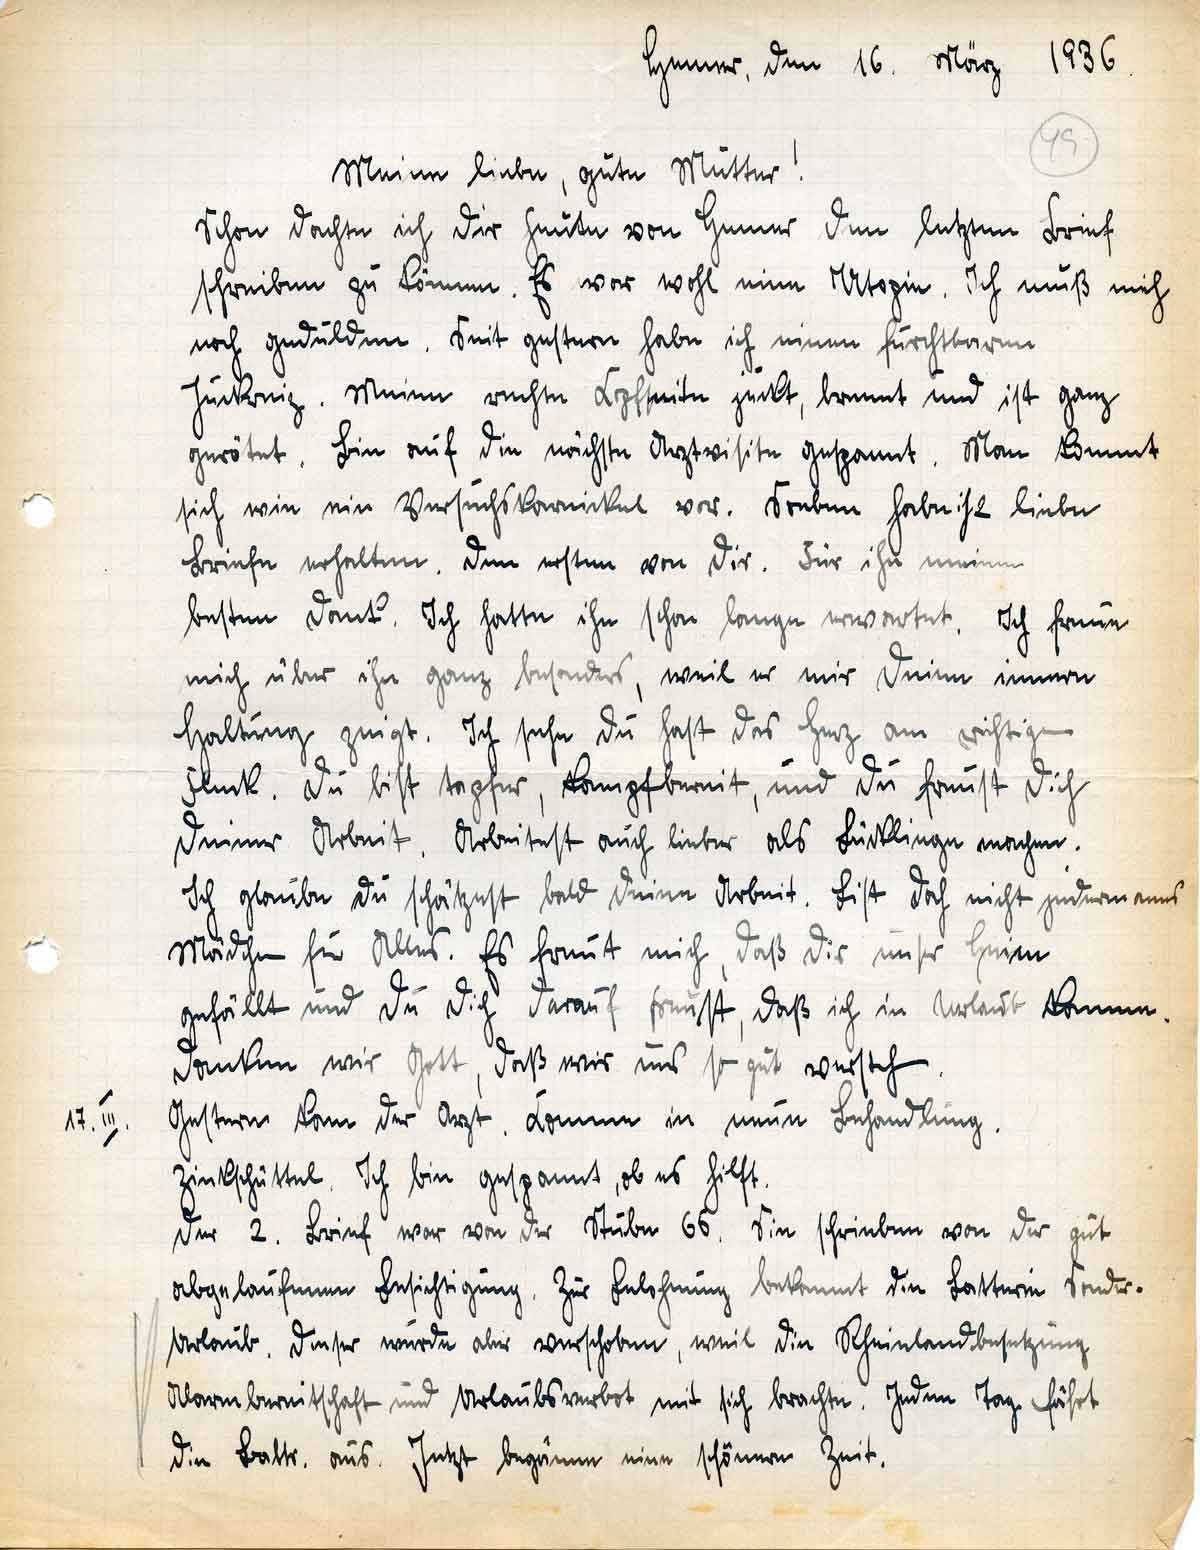 Hemer, den 16. März 1936.
49
Meine liebe, gute Mutter!
Schon dachte ich Dir heute von Hemer den letzten Brief
schreiben zu können. Es war wohl eine Utopie. Ich muß mich
noch gedulden. Seit gestern habe ich einen furchtbaren
Juckreiz. Meine rechte Kopfseite juckt, brennt und ist ganz
gerötet. Bin auf die nächste Arztvisite gespannt. Man kommt
sich wie ein Versuchskarnickel vor. Soeben habe ich 2 liebe
Briefe erhalten. Den ersten von Dir. Für ihn meinen
besten Dank. Ich hatte ihn schon lange erwartet. Ich freue
mich über ihn ganz besonders, weil er mir Deine innere
Haltung zeigt. Ich sehe Du hast das Herz am richtigen
Fleck. Du bist tapfer, kampfbereit, und Du freust Dich
Deiner Arbeit. Arbeitest auch lieber als Bücklinge machen.
Ich glaube Du schätzest bald Deine Arbeit. Bist doch nicht jedermanns
Mädchen für Alles. Es freut mich, daß Dir unser Heim
gefällt und Du Dich darauf freust, daß ich in Urlaub komme.
Danken wir Gott, daß wir uns so gut verstehn.
17. III. Gestern kam der Arzt. Komme in neue Behandlung.
Zinkschüttel. Ich bin gespannt, ob es hilft.
Der 2. Brief war von der Stube 66. Sie schrieben von der gut
abgelaufenen Besichtigung. Zur Belohnung bekommt die Batterie Sonder-
Urlaub. Dieser wurde aber verschoben, weil die Rheinlandbesetzung
Alarmbereitschaft und Urlaubsverbot mit sich brachte. Jeden Tag fährt
die Battr. aus. Jetzt begänne eine schönere Zeit.